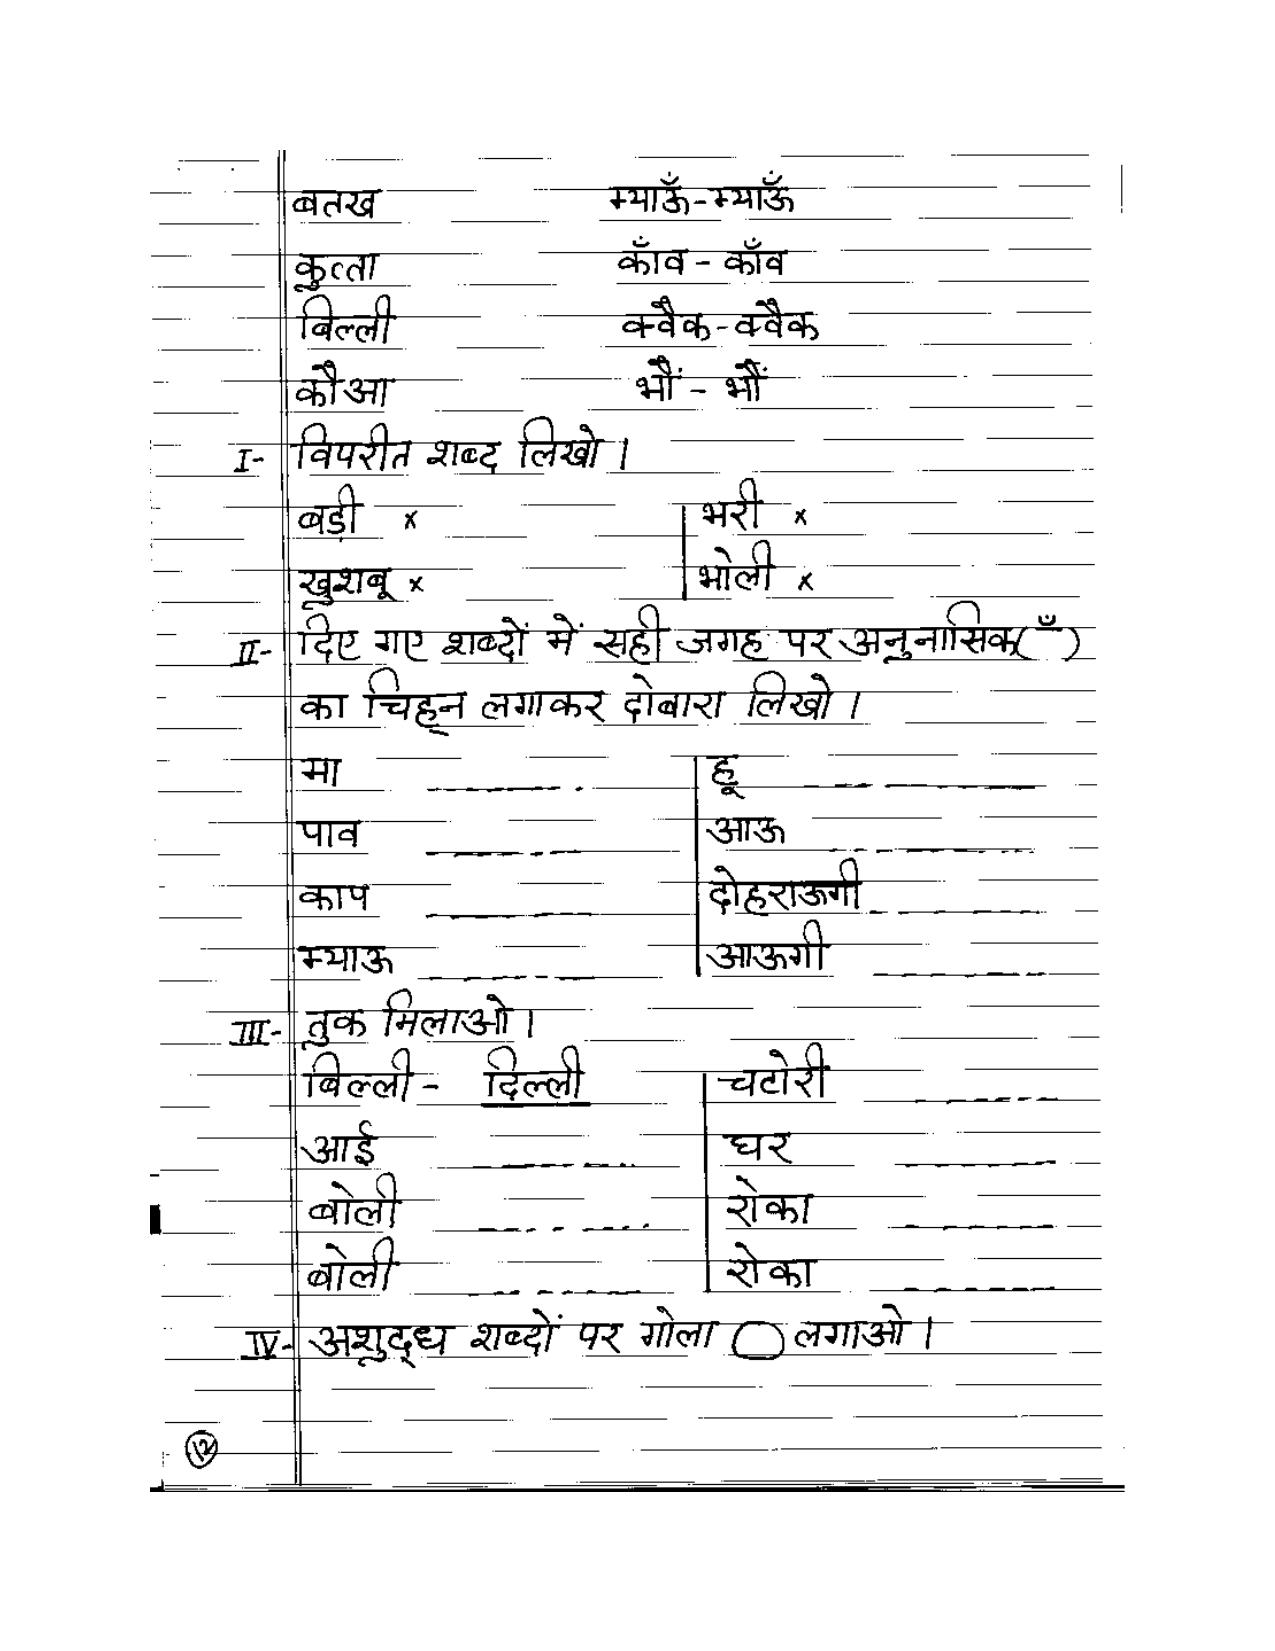 बतख म्याऊँ-म्याऊँ
कुत्ता काँव - काँव
बिल्ली क्वैक-क्वैक
कौआ भौं - भौं
I- विपरीत शब्द लिखो ।
बड़ी × भरी ×
खुशबू × भोली ×
II- दिए गए शब्दों में सही जगह पर अनुनासिक( ँ )
का चिह्न लगाकर दोबारा लिखो ।
मा हू
पाव आऊ
काप दोहराऊगी
म्याऊ आऊगी
III- तुक मिलाओ ।
बिल्ली - दिल्ली चटोरी
आई घर
बोली रोका
बोली रोका
IV- अशुद्ध शब्दों पर गोला लगाओ ।
१२